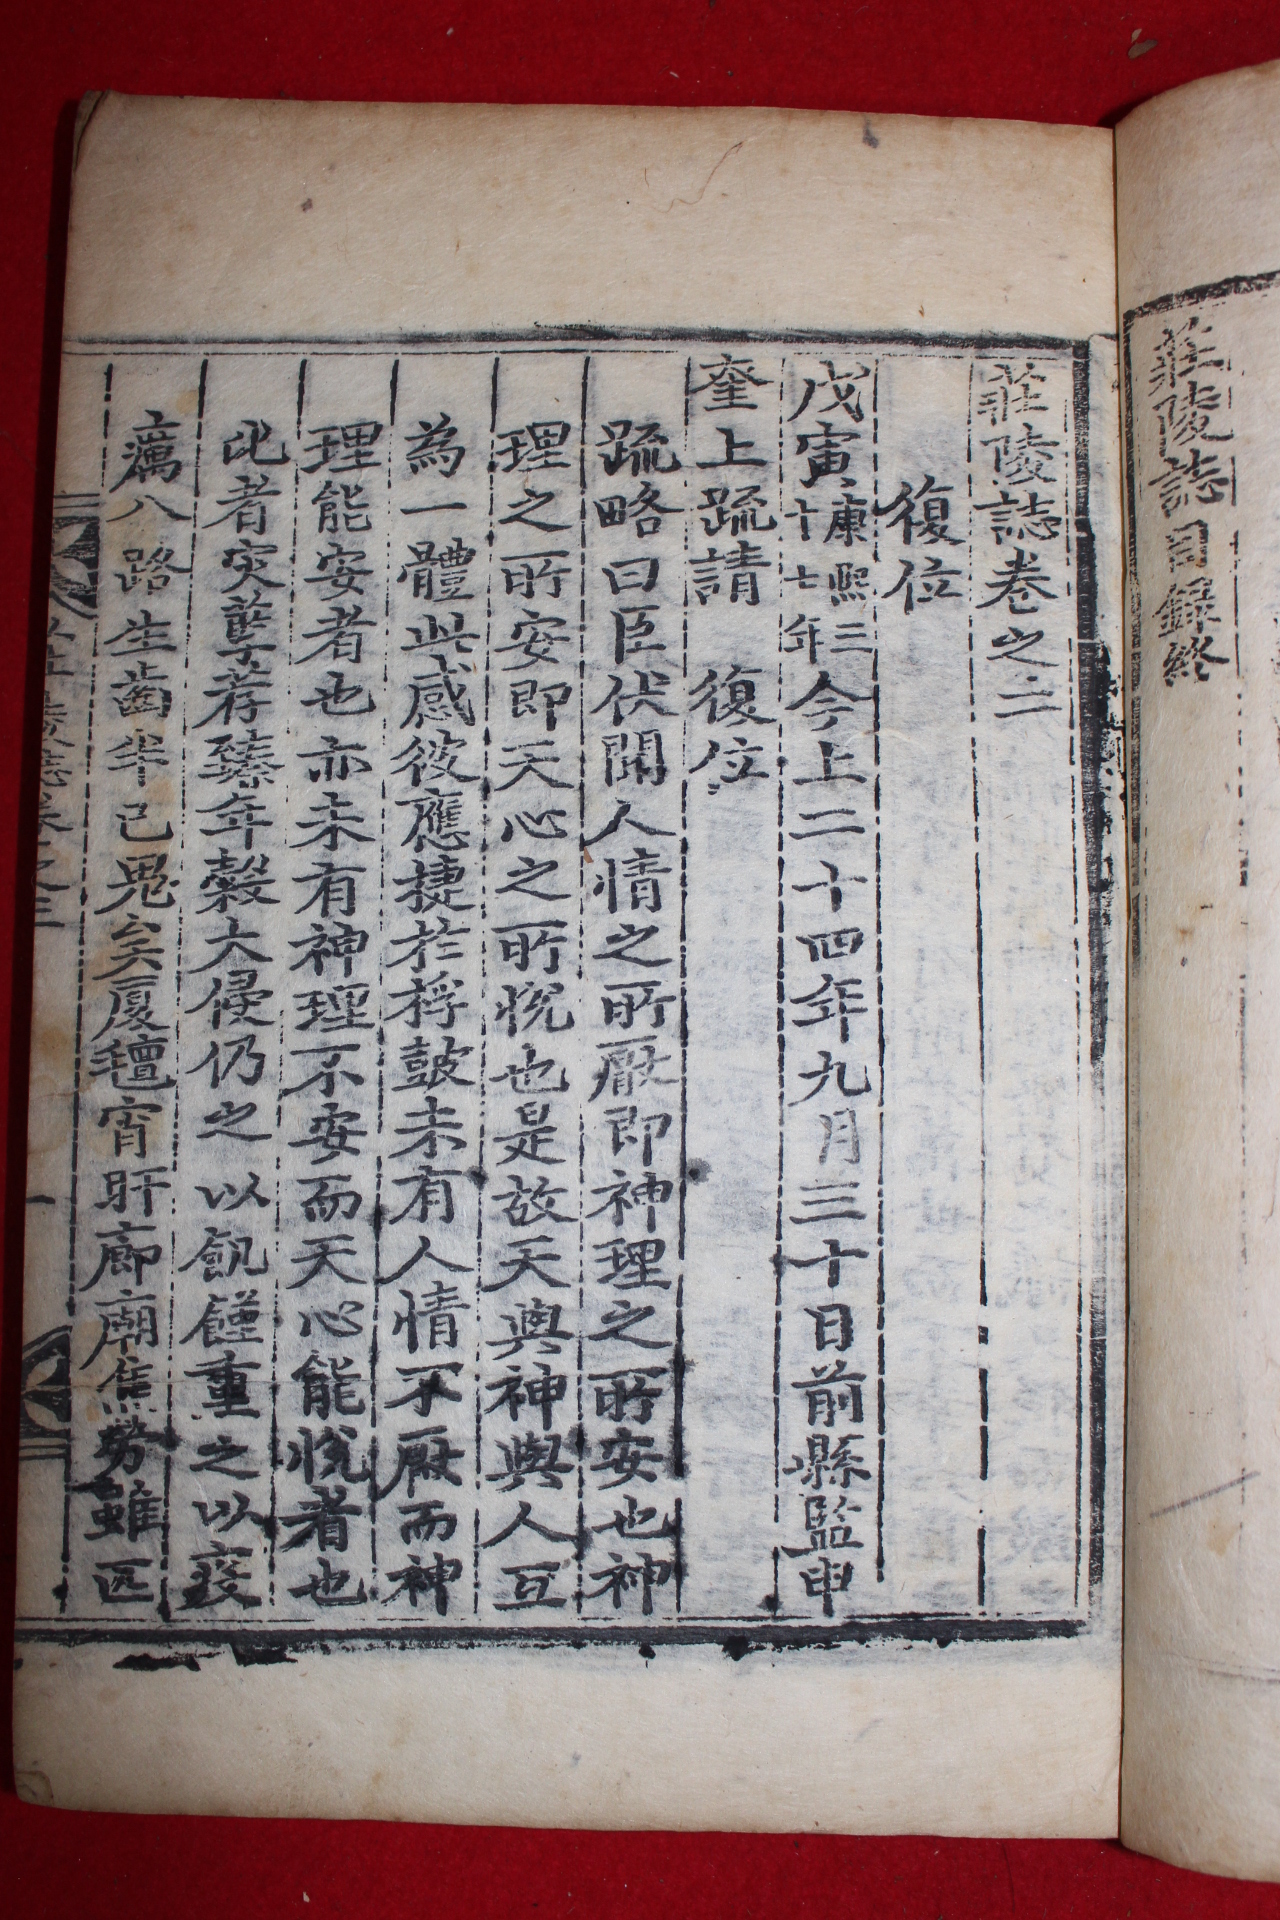 莊陵誌目錄終
莊陵誌卷之二
復位
戊寅康熙三十七年今上二十四年九月三十日前縣監申
奎上疏請 復位
疏略曰臣伏聞人情之所厭即神理之所安也神
理之所安即天心之所悅也是故天與神與人互
為一體此感彼應捷於桴鼓未有人情不厭而神
理能安者也亦未有神理不安而天心能悅者也
此者灾孽荐臻年穀大侵仍之以飢饉重之以疫
癘八路生齒半已鬼矣厦氊宵旰廊廟焦勞雖匹